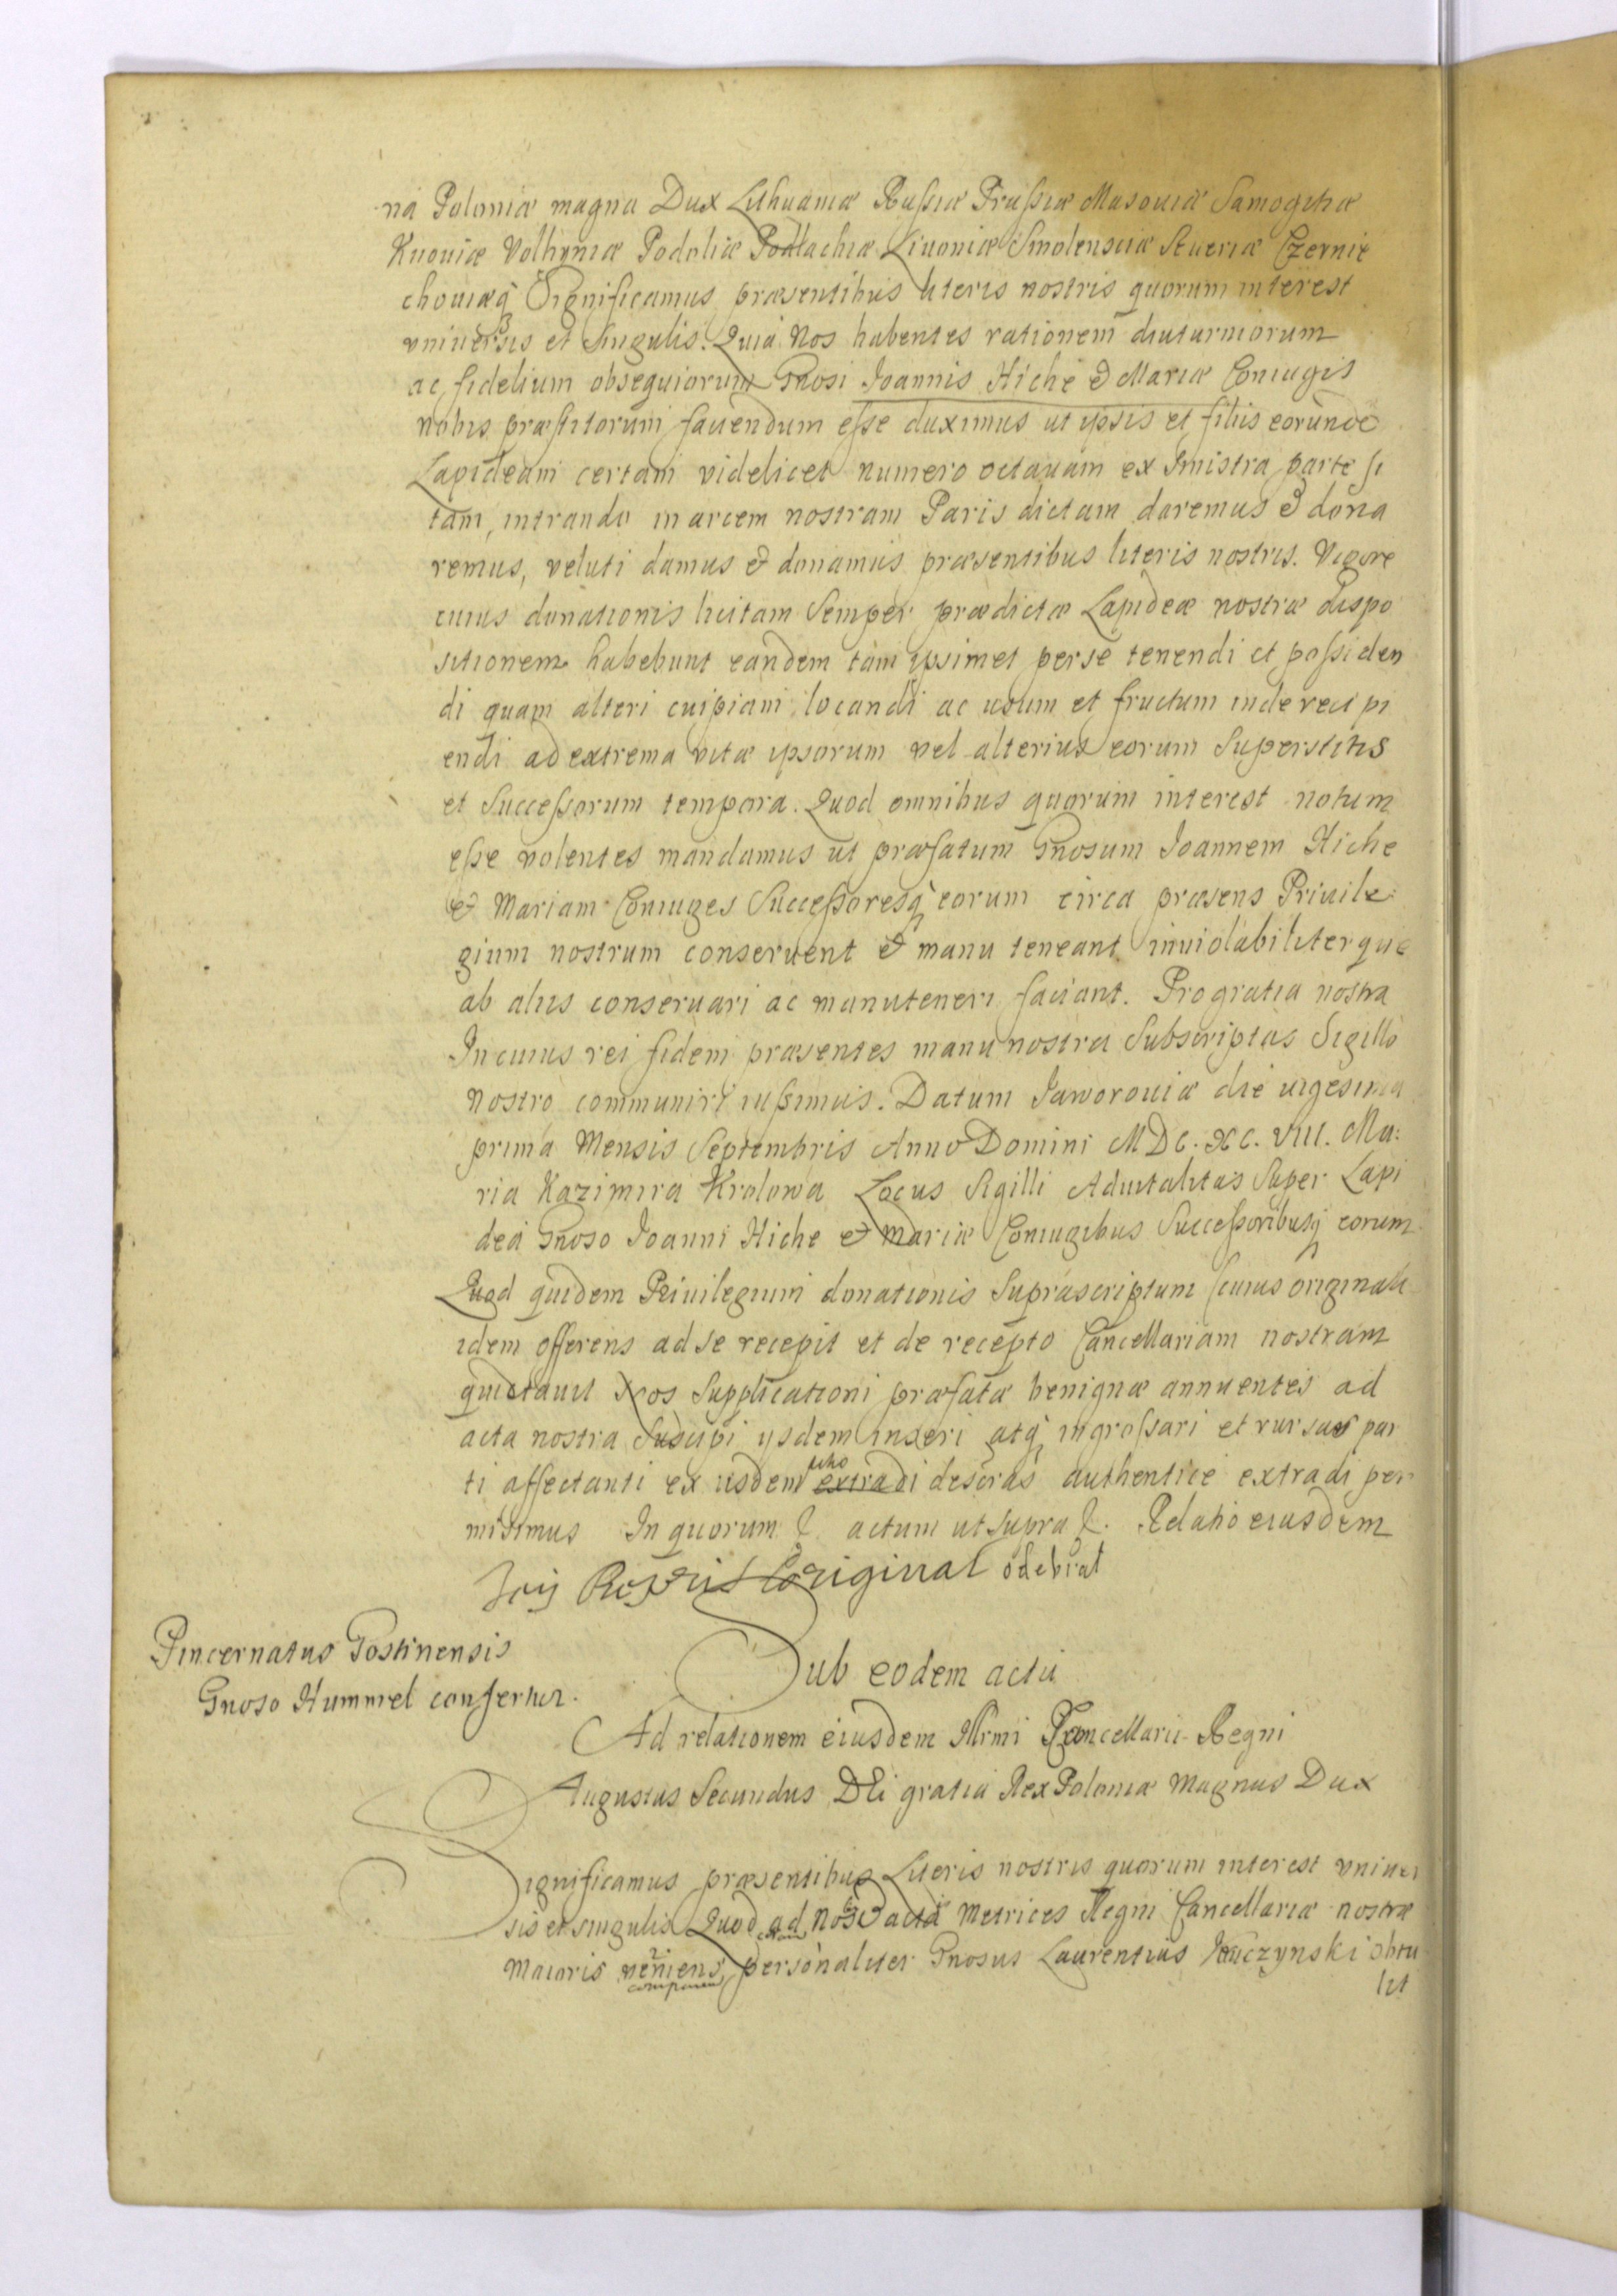 na Poloniæ magna Dux Lithuaniæ Russiæ Prussiæ Masouiæ Samogitiæ
Kijouiæ Volhyniæ Podoliæ Podlachiæ Liuoniæ Smolensciæ Seueriæ Czernie
chouiæq̃ Significamus præsentibus literis nostris quorum interest
vniuersis et singulis. Quià Nos habentes rationem diuturniorum
ac fidelium obsequiorum Gnosi Joannis Hiche & Mariæ Coniugis
nobis præstitorum fauendum esse duximus ut ipsis et filiis eorunde
Lapideam certam videlicet numero octauam ex sinistra parte si
tam, intrando in arcem nostram Paris dictam daremus & dona
remus, veluti damus & donamus præsentibus literis nostris. Vigore
cuius donationis licitam semper prædictæ Lapideæ nostræ dispo
sitionem habebunt eandem tam ipsimet per se tenendi et possiden
di quam alteri cuipiam locandi ac usum et fructum inde reci pi
endi ad extrema vitæ ipsorum vel alterius eorum superstitis
et Successorum tempora. Quod omnibus quorum interest notum
esse volentes mandamus ut præfatum Gnosum Joannem Hiche
& Mariam Coniuges Successoresq̃ eorum circa præsens Priuile
gium nostrum conseruent & manu teneant inuiolabiliterque
ab aliis conseruari ac manuteneri faciant. Pro gratia nostra
In cuius rei fidem præsentes manu nostra Subscriptas Sigillo
nostro communiri iussimus. Datum Jaworouiæ die uigesima
prima Mensis Septembris Anno Domini MDC. XC. VIII. Ma:
ria Kazimira Krolowa Locus Sigilli Aduitalitas Super Lapi
deà Gnoso Joanni Hiche & Mariæ Coniugibus Successoribusq̃ eorum
Quod quidem Priuilegium donationis Suprascriptum cuius originale
idem offerens ad se recepit et de recepto Cancellariam nostram
quietauit Nos Supplicationi præfatæ benignæ annuentes ad
acta nostra Suscipi ijsdem inseri atq̃ ingrossari et rursus par
ti affectanti ex iisdem extradi descras authentice extradi per
misimus In quorum & actum ut supra &. Relatio eiusdem
original odebrał
Pincernatus Gostinensis
Gnoso Hummel confertur.
Sub eodem actu
Ad relationem eiusdem Illrmi Cancellarii Regni
Augustus Secundus DEi gratia Rex Poloniæ Magnus Dux
Significamus præsentibus Literis nostris quorum interest vniuer
sis et singulis Quod ad Nos & acta Metrices Regni Cancellariæ nostræ
Maioris veniens personaliter Gnosus Laurentius Janczynski obtu
lit